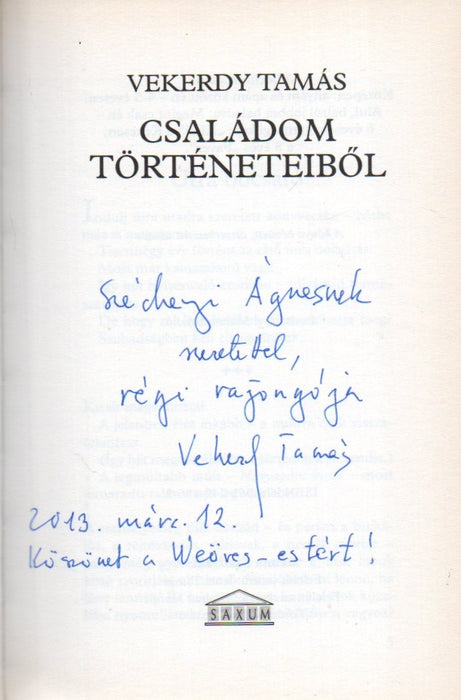 VEKERDY TAMÁS
CSALÁDOM
TÖRTÉNETEIBŐL
Széchenyi Ágnesnek
szeretettel,
régi rajongója
Vekerdy Tamás
2013. márc. 12.
Köszönet a Weöres-estért!
SAXUM